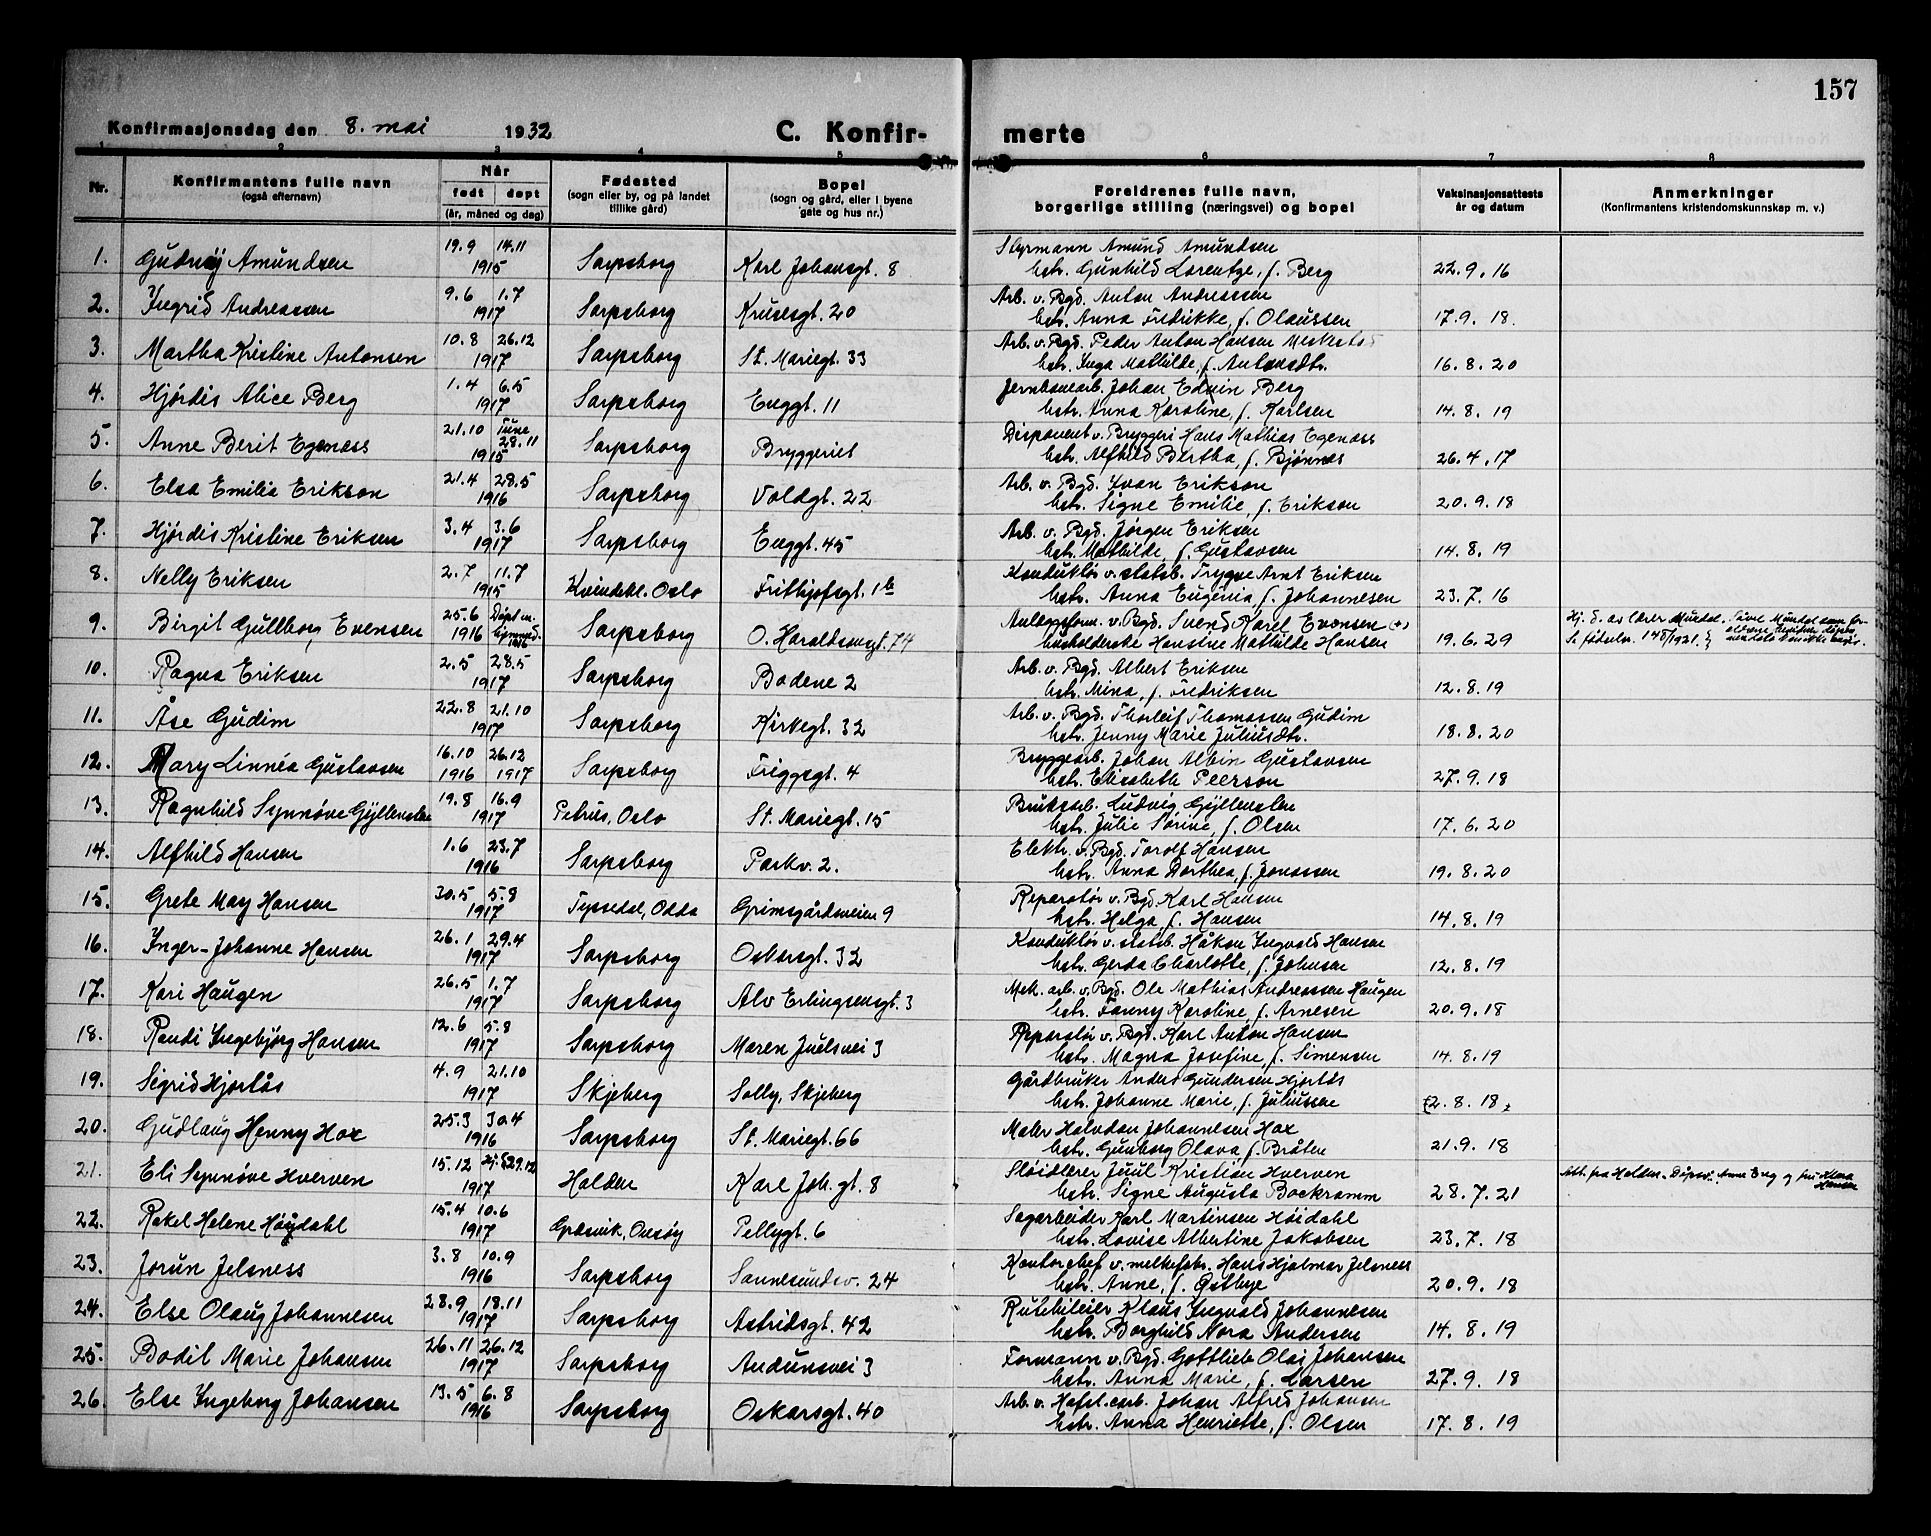 157
Konfirmasjonsdag den 8. mai 1932 C. Konfir- merte
1 2 3 4 5 6 7 8
Nr. Konfirmantens fulle navn (også efternavn) Når født døpt (år, måned og dag) Fødested (sogn eller by, og på landet tillike gård) Bopel (sogn og gård, eller i byene gate og hus nr.) Foreldrenes fulle navn, borgerlige stilling (næringsvei) og bopel Vaksinasjonsattests år og datum Anmerkninger (Konfirmantens kristendomskunnskap m. v.)
1. Gudnøy Amundsen 19.9 14.11 1915 Sarpsborg Karl Johansgt. 8 Styrmann Amund Amundsen
hstr. Gunhild Lorentze, f. Berg 22.9.16
2. Ingrid Andreassen 9.6 1.7 1917 Sarpsborg Krusesgt. 20 Arb. v. Bgd. Anton Andreassen
hstr. Anna Fredrikke, f. Olaussen 17.9.18.
3. Martha Kristine Antonsen 10.8 26.12 1917 Sarpsborg St. Mariegt. 33 Arb. v. Bgd. Peder Anton Hansen
hstr. Inga Mathilde, f. Antonsdtr. 16.8.20
4. Hjørdis Alice Berg 1.4 6.5 1917 Sarpsborg Enggt. 11 Jernbanearb. Johan Edvin Berg
hstr. Anna Karoline, f. Karlsen 14.8.19
5. Anne Berit Egenæss 21.10 Tune 28.11 1915 Sarpsborg Bryggeriet Disponent v. Bryggeri Hans Mathias Egenæss
hstr. Alfhild Bertha, f. Bjønnes 26.4.17
6. Elsa Emilia Erikson 21.4 28.5 1916 Sarpsborg Voldgt. 22 Arb. v. Bgd. Ivan Erikson
hstr. Signe Emilie, f. Erikson 20.9.18
7. Hjørdis Kristine Eriksen 3.4 3.6 1917 Sarpsborg Enggt. 45 Arb. v. Bgd. Jørgen Eriksen
hstr. Mathilde, f. Gustavsen 14.8.19
8. Nelly Eriksen 2.7 11.7 1915 Kvindekl. Oslo Frithjofsgt. 1b Konduktør v. statsb. Trygve Arnt Eriksen
hstr. Anna Eugenia, f. Johannesen 23.7.16
9. Birgit Gullborg Evensen 25.6 Døpt 1916 Sarpsborg O. Haraldsonsgt. 74 Anleggsform. v. Bgd. Svend Karel Evensen (+)
husholderske Hansine Mathilde Hansen 19.6.29 Hj. d. av lærer Mundal.
10. Ragna Eriksen 2.5 28.5 1917 Sarpsborg Bodene 2 Arb. v. Bgd. Albert Eriksen
hstr. Mina, f. Fredriksen 12.8.19
11. Åse Gudim 22.8 21.10 1917 Sarpsborg Kirkegt. 32 Arb. v. Bgd. Thorleif Thomassen Gudim
hstr. Jenny Marie Juliusdtr. 18.8.20
12. Mary Linnéa Gustavsen 16.10 1916 26.12 1917 Sarpsborg Friggsgt. 4 Bryggearb. Johan Albin Gustavsen
hstr. Elisabeth Peerson 27.9.18
13. Ragnhild Synnøve Gyllensten 19.8 16.9 1917 Petrus, Oslo St. Mariegt. 15 Bruksarb. Ludvig Gyllensten
hstr. Julie Sørine, f. Olsen 17.6.20
14. Alfhild Hansen 1.6 23.7 1916 Sarpsborg Parkv. 2. Elektr. v. Bgd. Torolf Hansen
hstr. Anna Dorthea, f. Jonassen 19.8.20
15. Grete May Hansen 30.5 5.8 1917 Tyssedal, Odda Grimsgårdsveien 9 Reparatør v. Bgd Karl Hansen
hstr. Helga, f. Hansen 14.8.19
16. Inger-Johanne Hansen 26.1 29.4 1917 Sarpsborg Oskarsgt. 32 Konduktør v. statsb. Håkon Ingvald Hansen
hstr. Gerda Charlotte, f. Johnsen 12.8.19
17. Kari Haugen 26.5 1.7 1917 Sarpsborg Alv Erlingsensgt. 3 Mek. arb. v. Bgd. Ole Mathias Andreassen Haugen
hstr. Fanny Karoline, f. Arnesen 20.9.18
18. Randi Ingebjørg Hansen 12.6 5.8 1917 Sarpsborg Maren Juelsvei 3 Reparatør v. Bgd. Karl Anton Hansen
hstr. Magna Josefine, f. Simensen 14.8.19
19. Sigrid Hjortås 4.9 21.10 1917 Skjeberg Solly, Skjeberg Gårdbruker Anders Gundersen Hjortås
hstr. Johanne Marie, f. Juliussen 2.8.18
20. Gudlaug Henny Hox 25.3 30.4 1916 Sarpsborg St. Mariegt. 66 Maler Halvdan Johannesen Hox
hstr. Gunborg Olava f. Bråten 21.9.18
21. Eli Synnøve Hverven 15.12 29.12 1917 Halden Karl Joh. gt. 8 Sløidlærer Juul Kristian Hverven
hstr. Signe Augusta Bockramm 28.7.21 Att. fra Halden.
22. Rakel Helene Høydahl 15.4 10.6 1917 Græsvik, Onsøy Pellygt. 6 Sagarbeider Karl Martinsen Høidahl
hstr. Lovise Albertine Jakobsen 23.7.18
23. Jorun Jelsness 3.8 10.9 1916 Sarpsborg Sannesundsv. 24 Kontorchef v. melkefabr. Hans Hjalmar Jelsness
hstr. Anne, f. Østbye 20.9.18
24. Else Olaug Johannesen 28.9 18.11 1917 Sarpsborg Astridsgt. 42 Rutebileier Klaus Ingvald Johannesen
hstr. Borghild Nora Andersen 14.8.19
25. Bodil Marie Johansen 26.11 26.12 1917 Sarpsborg Audunsvei 3 Formann v. Bgd. Gottlieb Olai Johansen
hstr. Anna Marie, f. Larsen 27.9.18
26. Else Ingeborg Johansen 13.5 6.8 1916 Sarpsborg Oskarsgt. 40 Arb. v. Hafsl. carb. Johan Alfred Johansen
hstr. Anna Henriette, f. Olsen 17.8.19